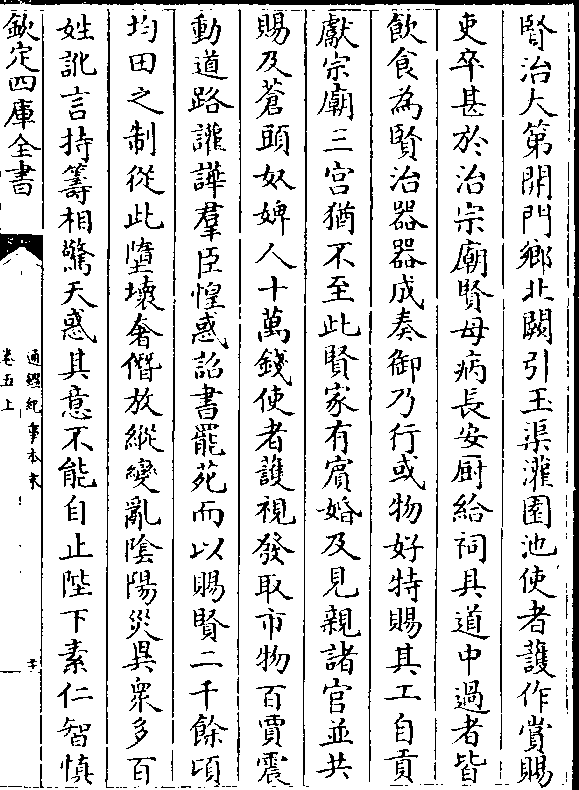 賢治大第開門鄉北闕引王渠灌園池使者護作賞賜
吏卒甚於治宗廟賢母病長安厨給祠具道中過者皆
飲食為賢治器器成奏御乃行或物好特賜其工自貢
獻宗廟三宮猶不至此賢家有賔婚及見親諸官並共
賜及蒼頭奴婢人十萬錢使者護視發取市物百賈震
動道路讙譁羣臣惶惑詔書罷苑而以賜賢二千餘頃
均田之制從此墮壞奢僭放縱變亂陰陽災異衆多百
姓訛言持籌相驚天惑其意不能自止陛下素仁智慎
欽定四庫全書
通鑑紀事本末
卷五上